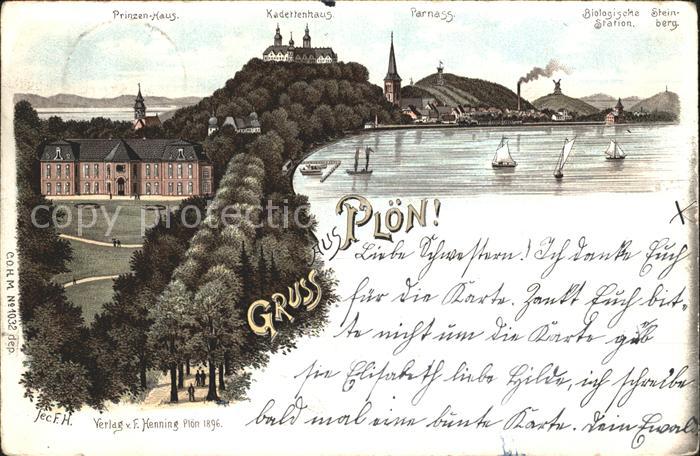 Prinzen-Haus. Kadettenhaus. Parnass. Biologische Station. Stein-berg.
copy protection copy protection
GRUSS AUS PLÖN!
X
Liebe Schwestern! Ich danke Euch
für die Karte. Zankt Euch bit-
te nicht um die Karte gib
sie Elisabeth liebe Hilde, ich schreibe
bald mal eine bunte Karte. Dein Ewald
C.O.H.M. No 1032 dep.
fec. F. H.
Verlag v. F. Henning Plön 1896.